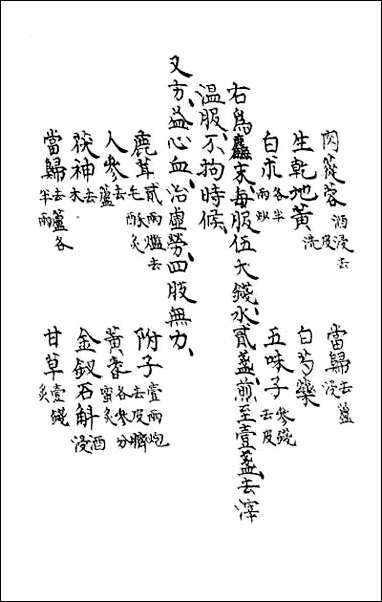 肉蓯蓉 酒浸去皮洗 當歸 去蘆浸
生乾地黃 白芍藥
白朮 各半兩炒 五味子 叁錢去皮
右為麤末每服伍大錢水貳盞煎至壹盞去滓
溫服不拘時候
又方益心血治虛勞四肢無力
鹿茸 貳兩爁去毛酥炙 附子 壹兩炮去皮臍
人參 去蘆 黃耆 各叁分蜜炙
茯神 去木 金釵石斛 酒浸
當歸 去蘆各半兩 甘草 壹錢炙